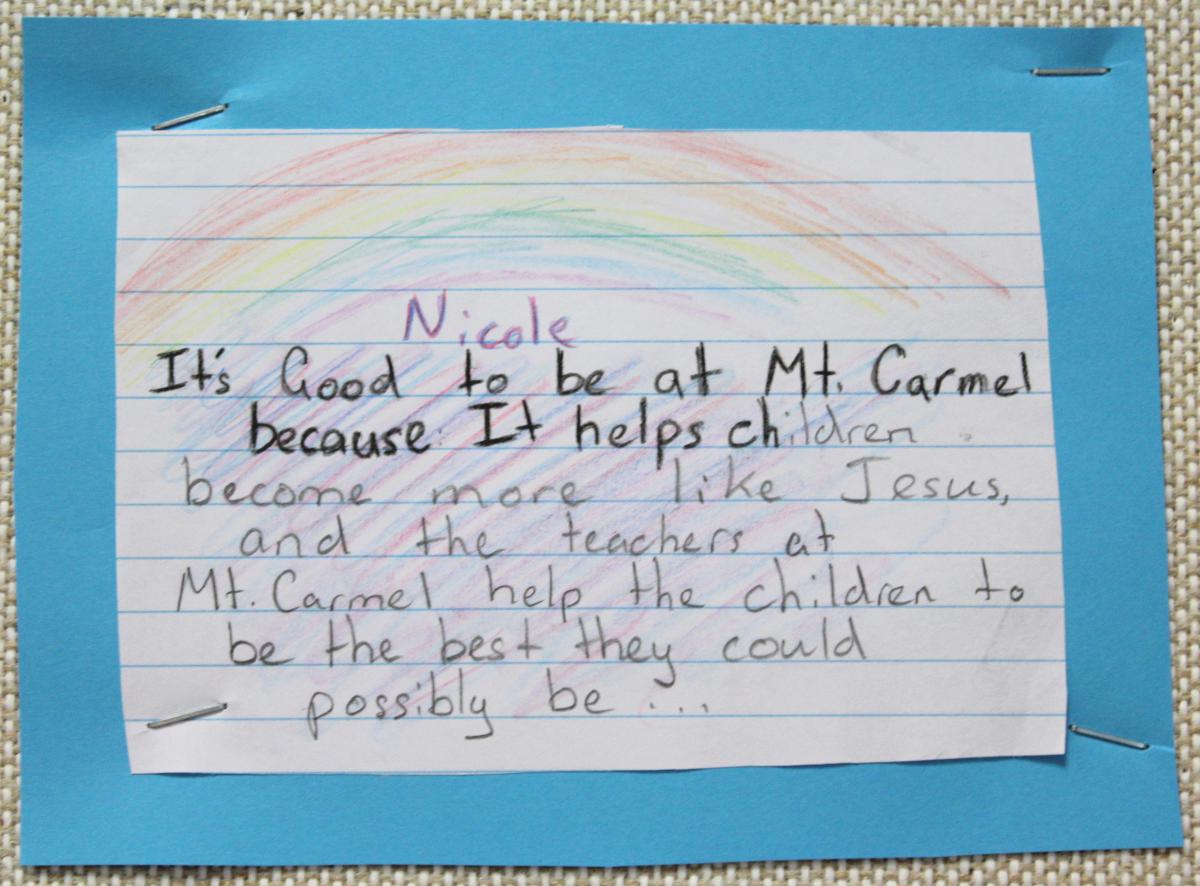 Nicole
It's Good to be at Mt. Carmel
because: It helps children
become more like Jesus,
and the teachers at
Mt. Carmel help the children to
be the best they could
possibly be ...